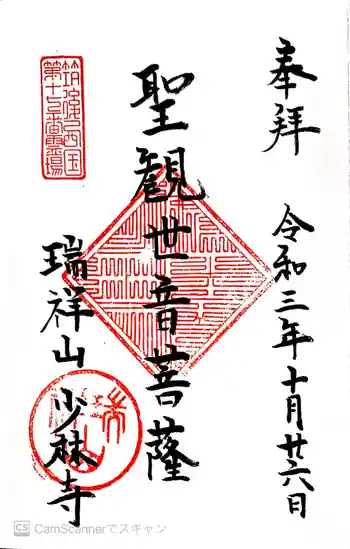 奉拜
令和三年十月廿六日
聖觀世音菩薩
瑞祥山少林寺
筑後西国
CS CamScannerでスキャン